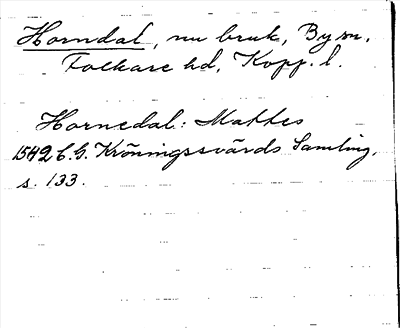 Horndal, nu bruk, By sn,
Folkare hd, Kopp. l.
Hornedal: Mattes
1542 C.G. Kröningssvärds Samling,
s. 133.